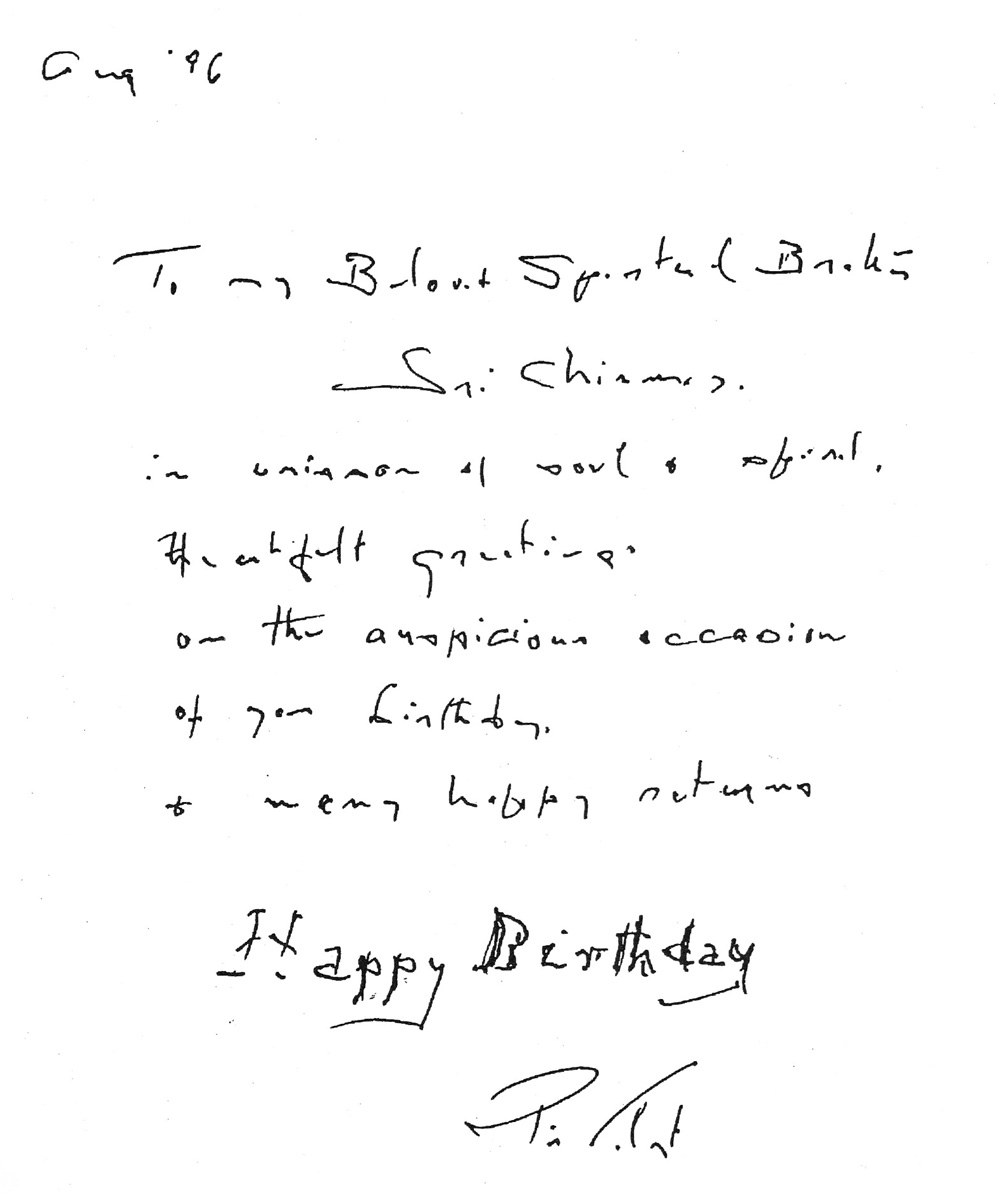 Aug '96
To my Beloved Spiritual Brother
Sri Chinmoy.
in unison of soul & spirit,
Heartfelt greetings
on the auspicious occasion
of your birthday.
& many happy returns
Happy Birthday
Pir